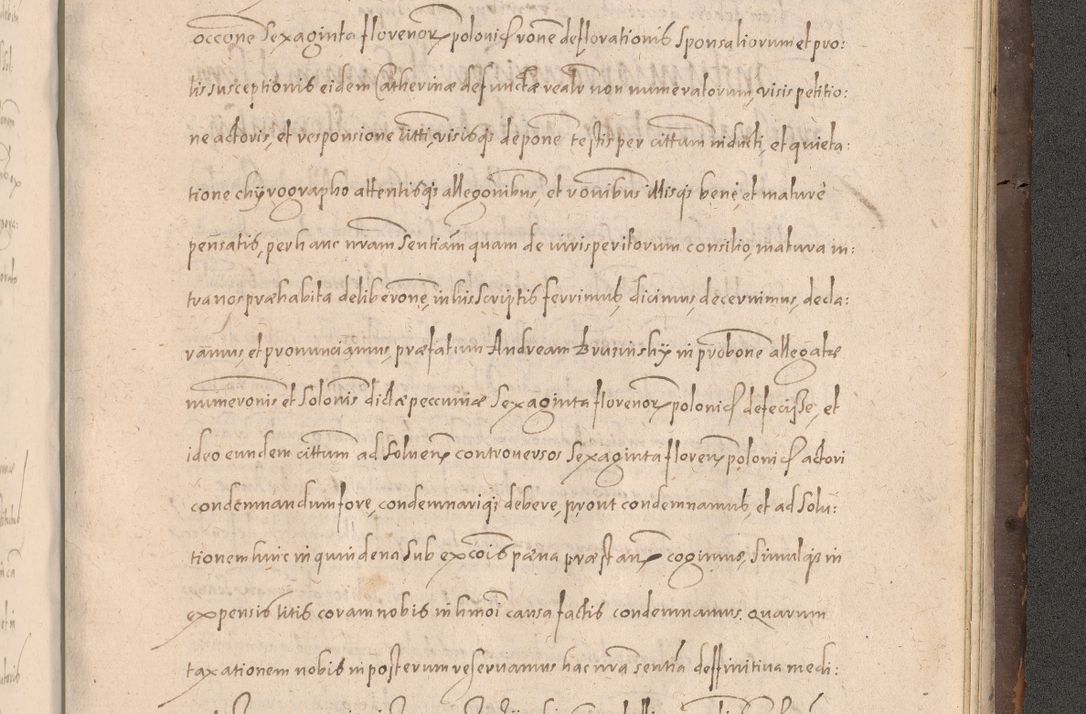 occone Sexaginta florenor polonic rone deflorationis Sponsaliorum et pro:
lis susceptionis eidem Catherinæ defunctæ realr non numeratorum, visis petitio:
ne actoris, et responsione citti, visisqs depone testis per cittum inducti, et quieta:
tione chyrographo attentisqs allegonibus, et ronibus illisqs bene, et mature
pensatis, per hanc nram Sentiam quam de viris peritorum consilio, matura in:
tra nos præhabita deliberone, in his Scriptis ferrimus, dicimus, decernimus, decla:
ramus, et pronunciamus, præfatum Andream Brusinsky in probone allegatæ
numeronis et Solonis dictæ peccuniæ Sexaginta florenor polonic defecisse, et
ideo eundem cittum ad Soluen controversos Sexaginta floren polonic actori
condemnandum fore, condemnariqs debere, prout condemnamus, et ad Solu:
tionem huic in quindena Sub excois pæna præstan cogimus, Simulqs in
expensis litis coram nobis in hmoi causa factis condemnamus. Quarum
taxationem nobis in posterum reservamus hac nra sentia deffinitiva medi: